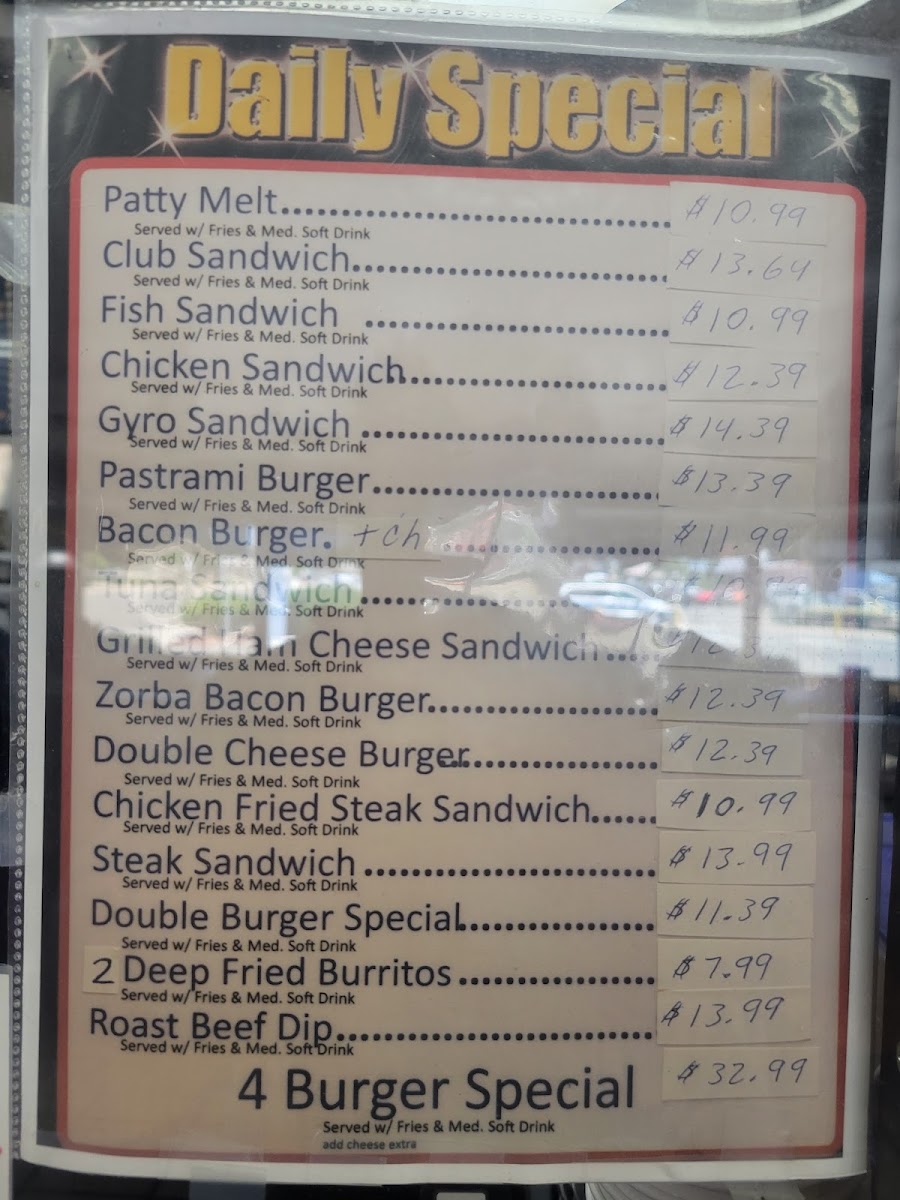 Daily Special
Patty Melt.............................. $10.99
Served w/ Fries & Med. Soft Drink
Club Sandwich........................ $13.64
Served w/ Fries & Med. Soft Drink
Fish Sandwich ....................... $10.99
Served w/ Fries & Med. Soft Drink
Chicken Sandwich.................... $12.39
Served w/ Fries & Med. Soft Drink
Gyro Sandwich ....................... $14.39
Served w/ Fries & Med. Soft Drink
Pastrami Burger...................... $13.39
Served w/ Fries & Med. Soft Drink
Bacon Burger. + ch ................. $11.99
Served w/ Fries & Med. Soft Drink
Tuna Sandwich .......................
Served w/ Fries & Med. Soft Drink
Grilled Ham Cheese Sandwich....
Served w/ Fries & Med. Soft Drink
Zorba Bacon Burger.................. $12.39
Served w/ Fries & Med. Soft Drink
Double Cheese Burger............... $12.39
Served w/ Fries & Med. Soft Drink
Chicken Fried Steak Sandwich..... $10.99
Served w/ Fries & Med. Soft Drink
Steak Sandwich ....................... $13.99
Served w/ Fries & Med. Soft Drink
Double Burger Special............... $11.39
Served w/ Fries & Med. Soft Drink
2 Deep Fried Burritos ............... $7.99
Served w/ Fries & Med. Soft Drink
Roast Beef Dip......................... $13.99
Served w/ Fries & Med. Soft Drink
4 Burger Special $32.99
Served w/ Fries & Med. Soft Drink
add cheese extra